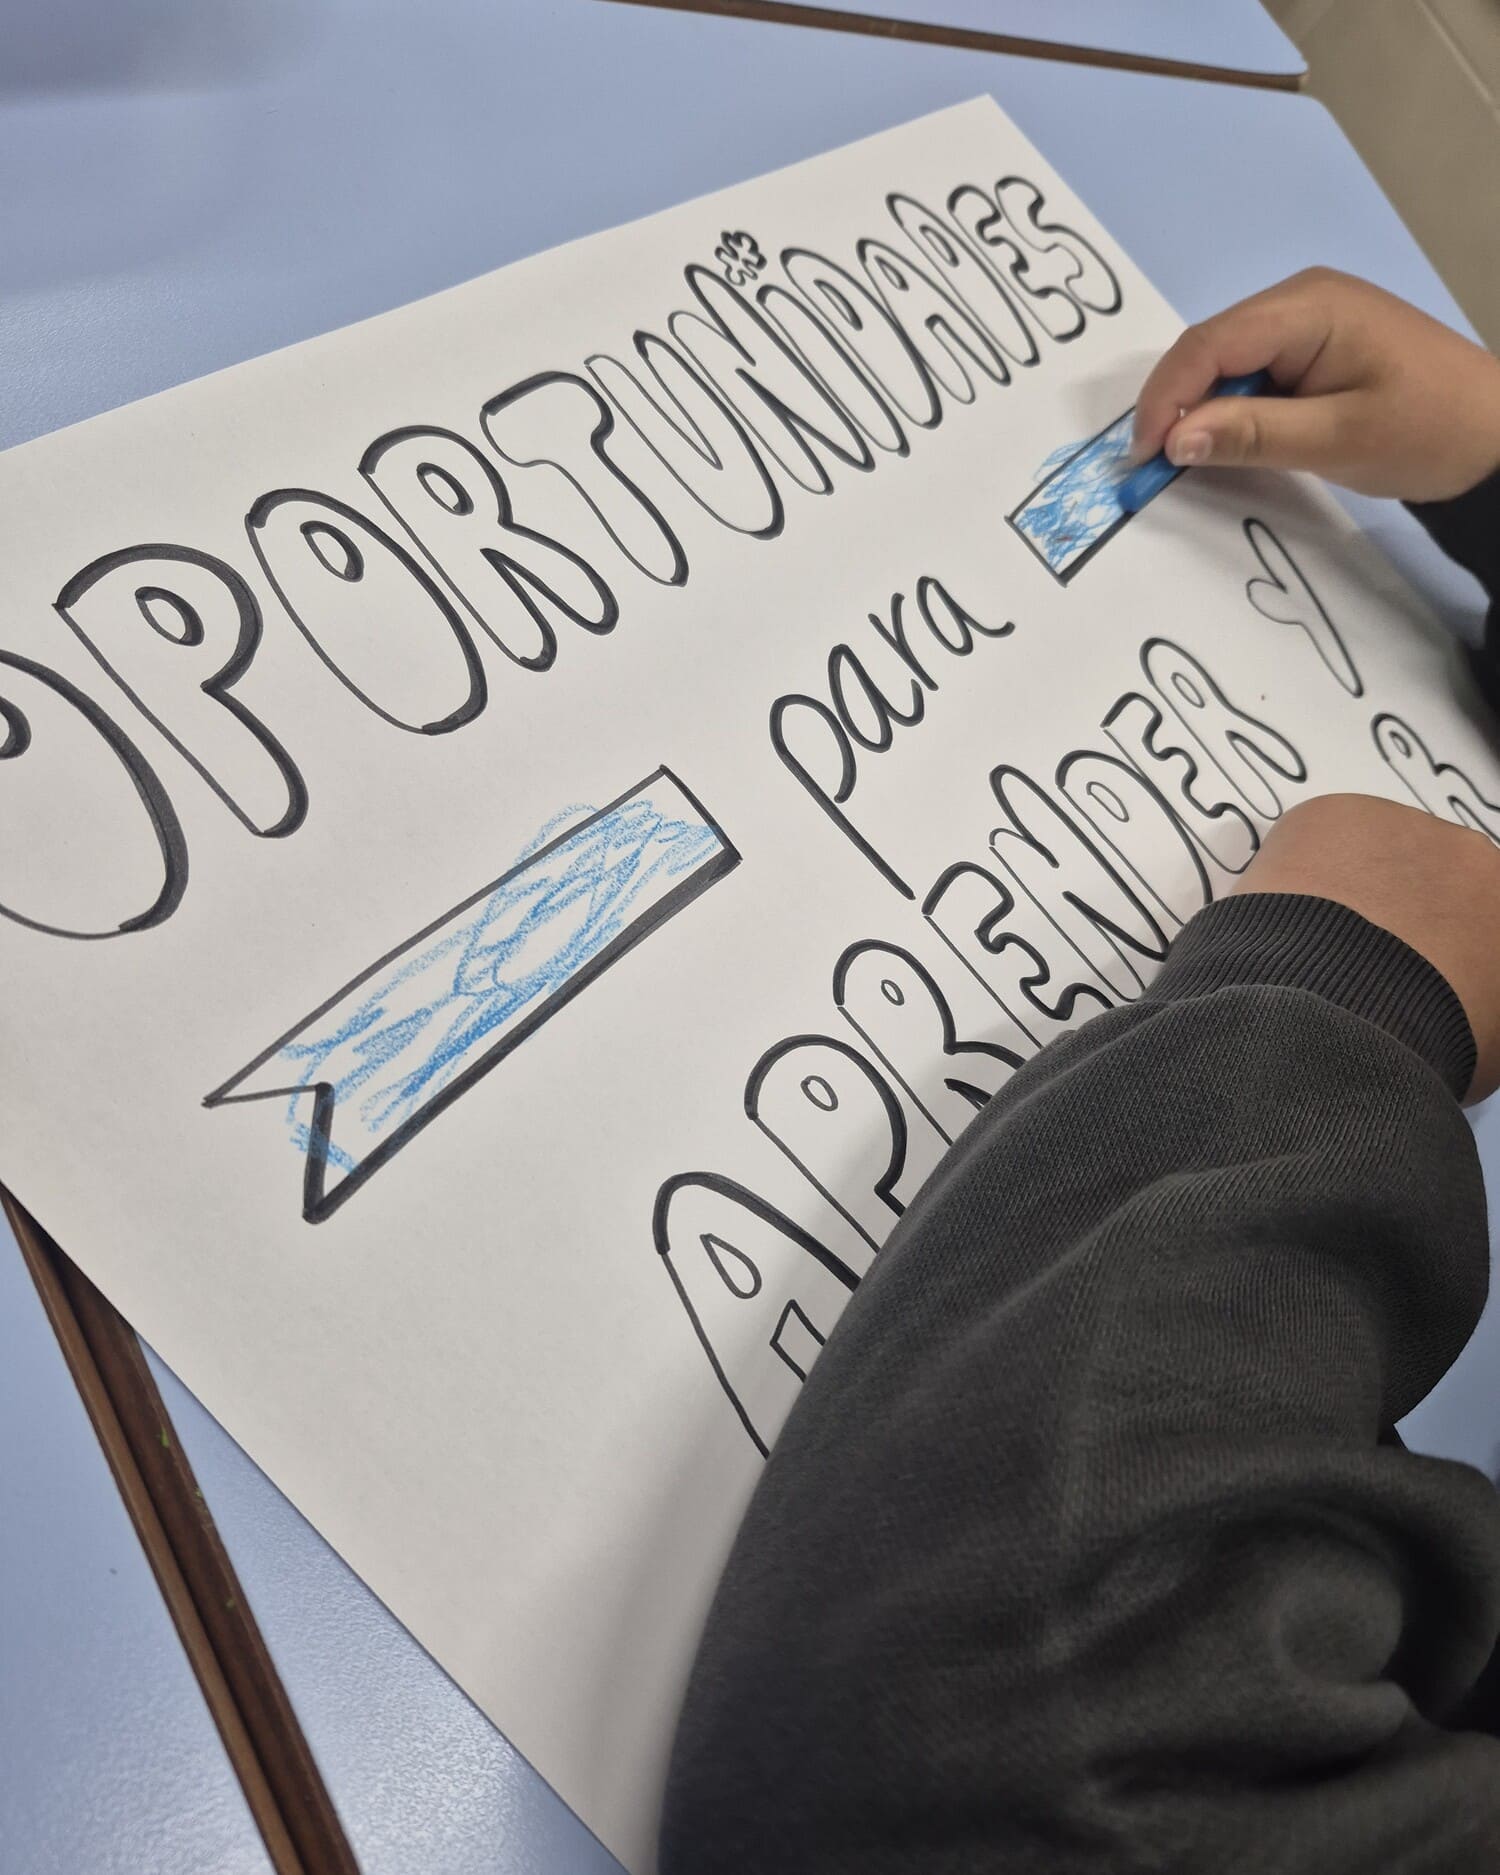 OPORTUNIDADES
para
APRENDER Y